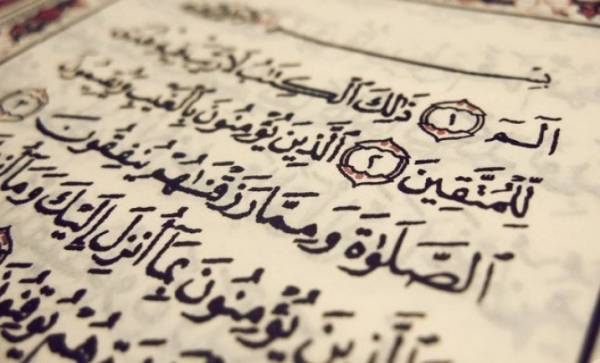 الٓمٓ ١ ذَٰلِكَ ٱلْكِتَٰبُ لَا رَيْبَ فِيهِ هُدًى
لِّلْمُتَّقِينَ ٢ ٱلَّذِينَ يُؤْمِنُونَ بِٱلْغَيْبِ وَيُقِيمُونَ
ٱلصَّلَوٰةَ وَمِمَّا رَزَقْنَٰهُمْ يُنفِقُونَ ٣
وَٱلَّذِينَ يُؤْمِنُونَ بِمَآ أُنزِلَ إِلَيْكَ وَمَآ
هُمْ يُوقِنُونَ